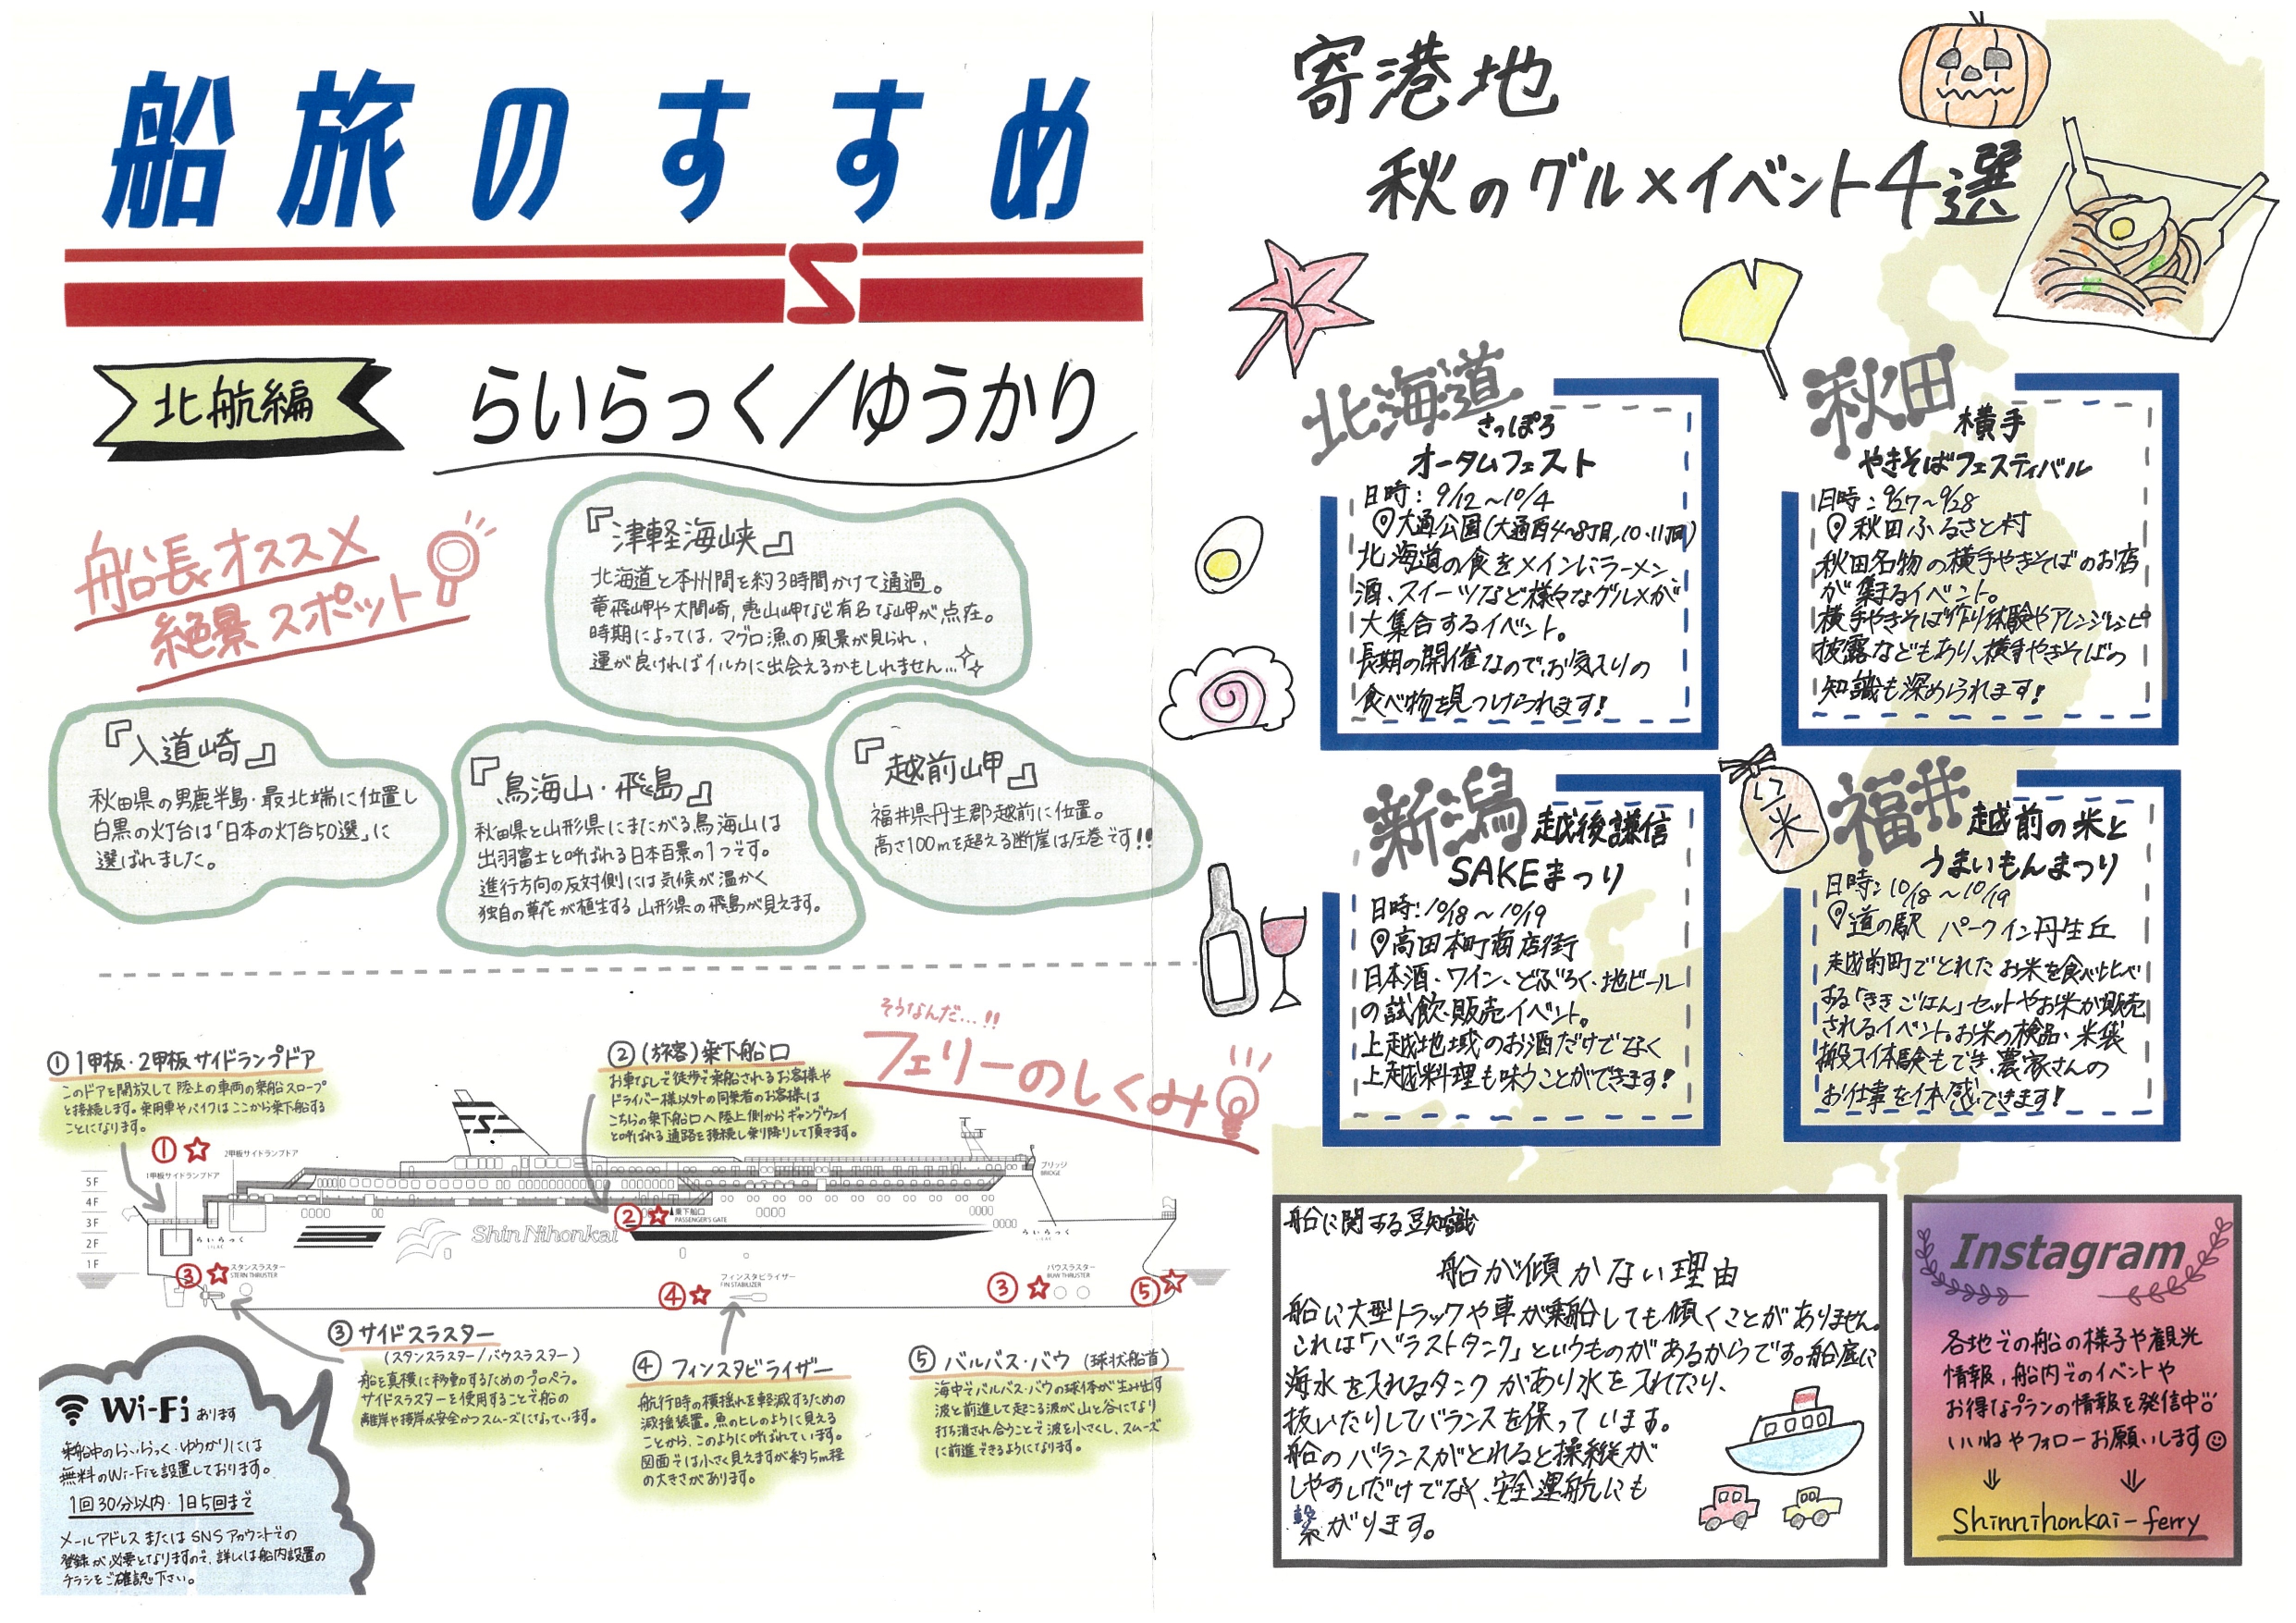 船旅のすすめ
北航編
らいらっく/ゆうかり
船長オススメ
絶景スポット
『津軽海峡』
北海道と本州間を約3時間かけて通過。
竜飛岬や大間崎,恵山岬など有名な岬が点在。
時期によっては、マグロ漁の風景が見られ、
運が良ければイルカに出会えるかもしれません…
『入道崎』
秋田県の男鹿半島・最北端に位置し
白黒の灯台は「日本の灯台50選」に
選ばれました。
『鳥海山・飛島』
秋田県と山形県にまたがる鳥海山は
出羽富士と呼ばれる日本百景の1つです。
進行方向の反対側には気候が温かく
独自の草花が植生する山形県の飛島が見えます。
『越前岬』
福井県丹生郡越前に位置。
高さ100mを超える断崖は圧巻です!!
そうなんだ…!!
フェリーのしくみ
① 1甲板・2甲板サイドランプドア
このドアを開放して陸上の車両の乗船スロープ
と接続します。乗用車やバイクはここから乗下船する
ことになります。
②(旅客)乗下船口
お車なしで徒歩で乗船されるお客様や
ドライバー様以外の同乗者のお客様は
こちらの乗下船口へ陸上側からギャングウェイ
と呼ばれる通路を接続し乗り降りして頂きます。
①
2甲板サイドランプドア
1甲板サイドランプドア
5F
4F
3F
2F
1F
ブリッジ
BRIDGE
②
乗下船口
PASSENGER'S GATE
Shin Nihonkai
らいらっく
LILAC
らいらっく
LILAC
③
スタンスラスター
STERN THRUSTER
④
フィンスタビライザー
FIN STABILIZER
③
バウスラスター
BUW THRUSTER
⑤
③ サイドスラスター
(スタンスラスター/バウスラスター)
船を真横に移動するためのプロペラ。
サイドスラスターを使用することで船の
離岸や接岸が安全かつスムーズになっています。
④ フィンスタビライザー
航行時の横揺れを軽減するための
減揺装置。魚のヒレのように見える
ことから、このように呼ばれています。
図面では小さく見えますが約5m程
の大きさがあります。
⑤ バルバス・バウ (球状船首)
海中でバルバス・バウの球体が生み出す
波と前進して起こる波が山と谷になり
打ち消され合うことで波を小さくし、スムーズ
に前進できるようになります。
Wi-Fi あります
乗船中のらいらっく・ゆうかりには
無料のWi-Fiを設置しております。
1回30分以内・1日5回まで
メールアドレスまたはSNSアカウントでの
登録が必要となりますので、詳しくは船内設置の
チラシをご確認下さい。
寄港地
秋のグルメイベント4選
北海道
さっぽろ
オータムフェスト
日時:9/12〜10/4
大通公園(大通西4~8丁目,10・11丁目)
北海道の食をメインにラーメン
酒、スイーツなど様々なグルメが
大集合するイベント。
長期の開催なので、お気入りの
食べ物を見つけられます!
秋田
横手
やきそばフェスティバル
日時:9/27〜9/28
秋田ふるさと村
秋田名物の横手やきそばのお店
が集まるイベント。
横手やきそば作り体験やアレンジレシピ
披露などもあり、横手やきそばの
知識も深められます!
新潟
越後謙信
SAKEまつり
日時:10/18〜10/19
高田本町商店街
日本酒・ワイン・どぶろく・地ビール
の試飲・販売イベント。
上越地域のお酒だけでなく
上越料理も味うことができます!
米
福井
越前の米と
うまいもんまつり
日時:10/18〜10/19
道の駅 パークイン丹生丘
越前町でとれたお米を食べ比べ
する「ききごはん」セットやお米が販売
されるイベント。お米の検品・米袋
搬入体験もでき、農家さんの
お仕事を体感できます!
船に関する豆知識
船が傾かない理由
船に大型トラックや車が乗船しても傾くことがありません。
これは「バラストタンク」というものがあるからです。船底に
海水を入れるタンクがあり水を入れたり、
抜いたりしてバランスを保っています。
船のバランスがとれると操縦が
しやすいだけでなく、安全運航にも
繋がります。
Instagram
各地での船の様子や観光
情報、船内でのイベントや
お得なプランの情報を発信中
いいねやフォローお願いします
Shinnihonkai-ferry